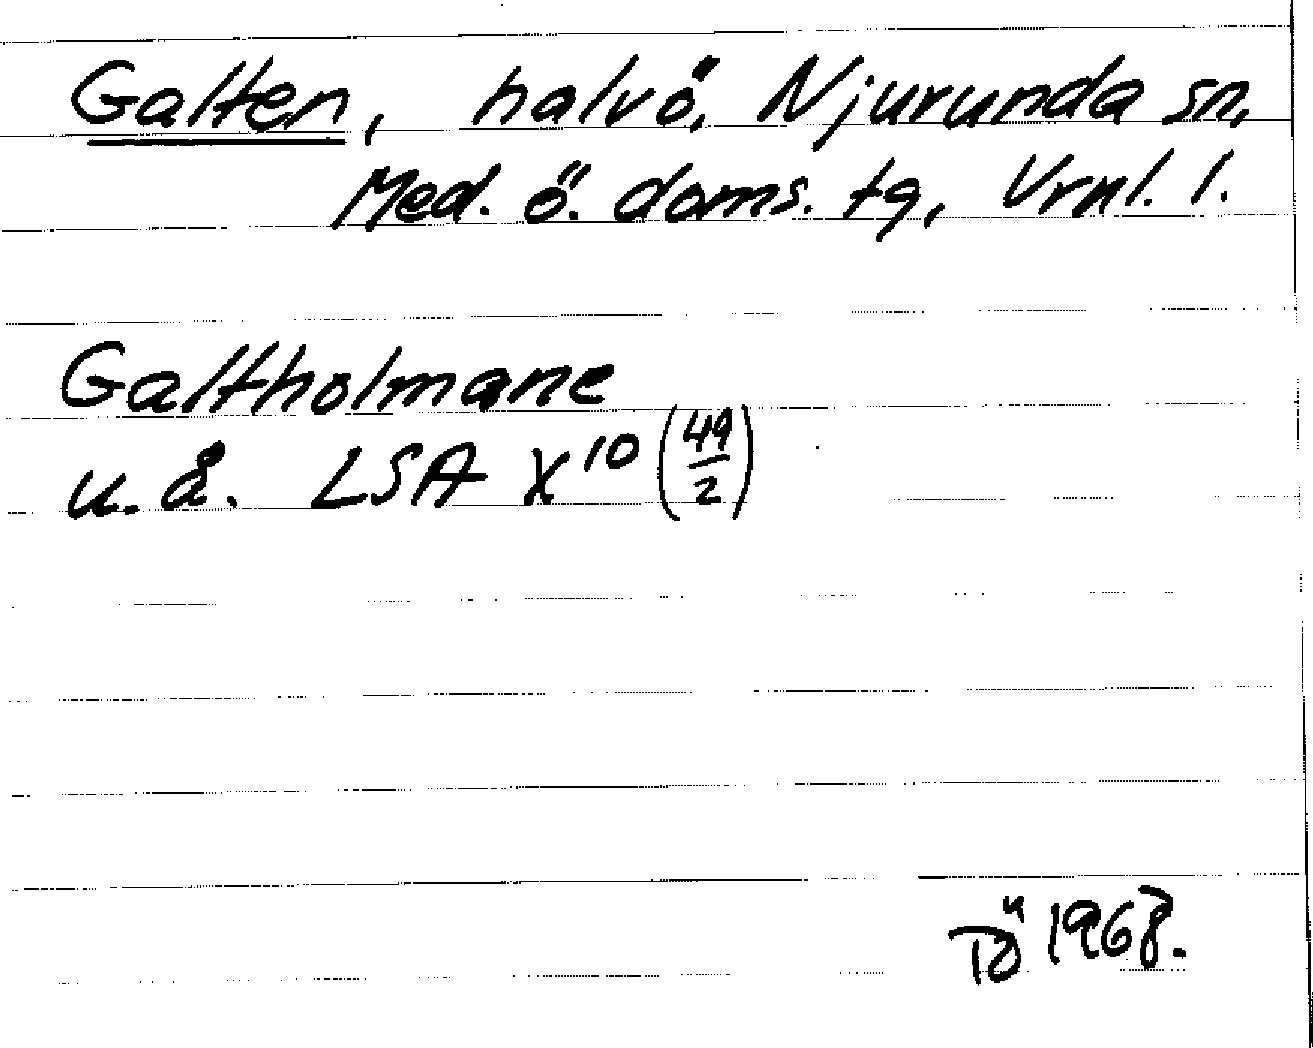 Galten, halvö, Njurunda sn,
Med. ö. doms. tg, Vrnl. l.
Galtholmane
u. å. LSA X¹⁰ (49/2)
TÖ 1968.